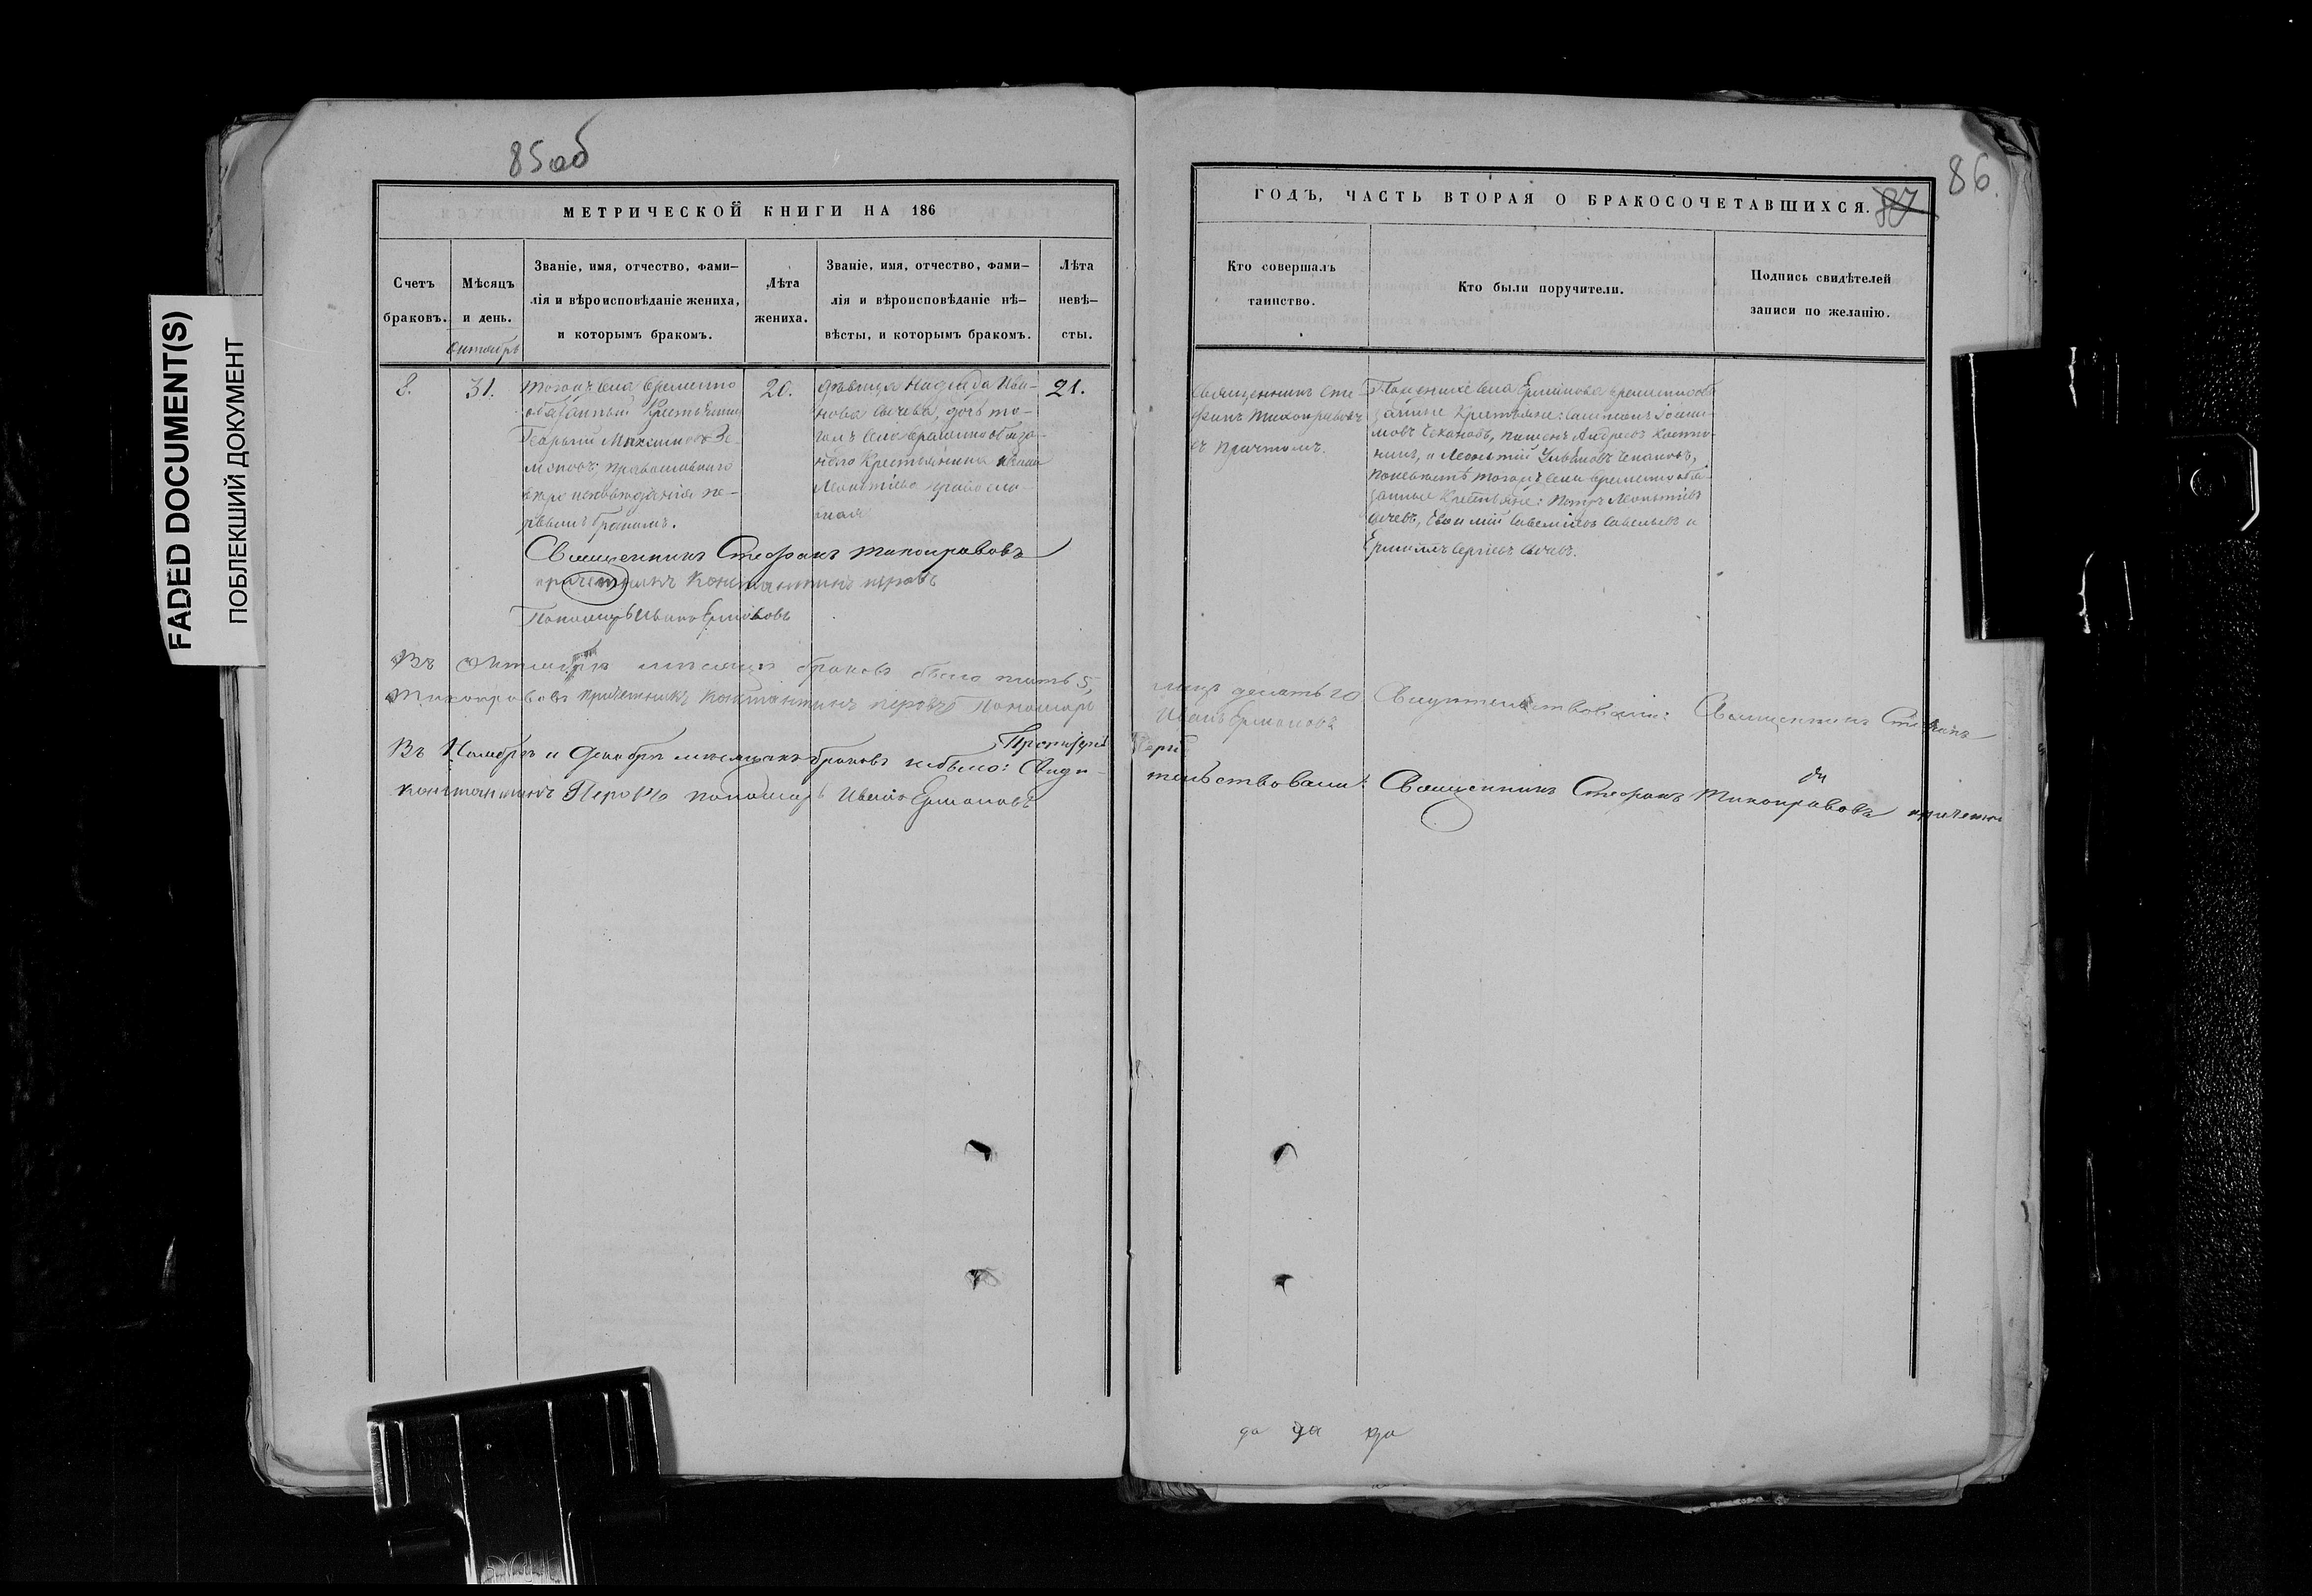 FADED DOCUMENT(S)
ПОБЛЕКШИЙ ДОКУМЕНТ
85об
МЕТРИЧЕСКОЙ КНИГИ НА 186
Счетъ браковъ.
Мѣсяцъ и день.
Званіе, имя, отчество, фами-
лія и вѣроисповѣданіе жениха,
и которымъ бракомъ.
Лѣта жениха.
Званіе, имя, отчество, фами-
лія и вѣроисповѣданіе не-
вѣсты, и которымъ бракомъ.
Лѣта невѣ-
сты.
Октябрь
8.
31.
тогожъ села временно
обязанный Крестьянинъ
Георгій Максимовъ
православнаго
вѣроисповѣданія пе-
рвымъ бракомъ.
20.
дѣвица Надежда Ива-
нова Сычева, дочь то-
гожъ села временнообяза-
наго Крестьянина Ивана
Леонтіева правосла-
вная
21.
Священникъ Стефанъ Тихонравовъ
причетникъ Константинъ Перовъ
Пономарь Иванъ Ермаковъ
Въ Октябрѣ мѣсяцѣ браковъ было пять 5,
Тихонравовъ причетникъ Константинъ Перовъ Пономарь
Въ Ноябрѣ и Декабрѣ мѣсяцахъ браковъ небыло: Свидѣ-
Константинъ Перовъ пономарь Иванъ Ермаковъ
86.
87
ГОДЪ, ЧАСТЬ ВТОРАЯ О БРАКОСОЧЕТАВШИХСЯ.
Кто совершалъ
таинство.
Кто были поручители.
Подпись свидѣтелей
записи по желанію.
Священникъ Сте-
фанъ Тихонравовъ
съ причтомъ.
По женихѣ села временнообя-
занные Крестьяне:
Андреевъ
и Леонтій
по невѣстѣ тогожъ села временнообя-
занные Крестьяне: Петръ Леонтіевъ
Сычевъ, Савельевъ и
Сергіевъ Сычевъ.
лицъ десять 10 Свидѣтельствовали: Священникъ Стефанъ
Иванъ Ермаковъ
тельствовали: Священникъ Стефанъ Тихонравовъ причетникъ
да да да